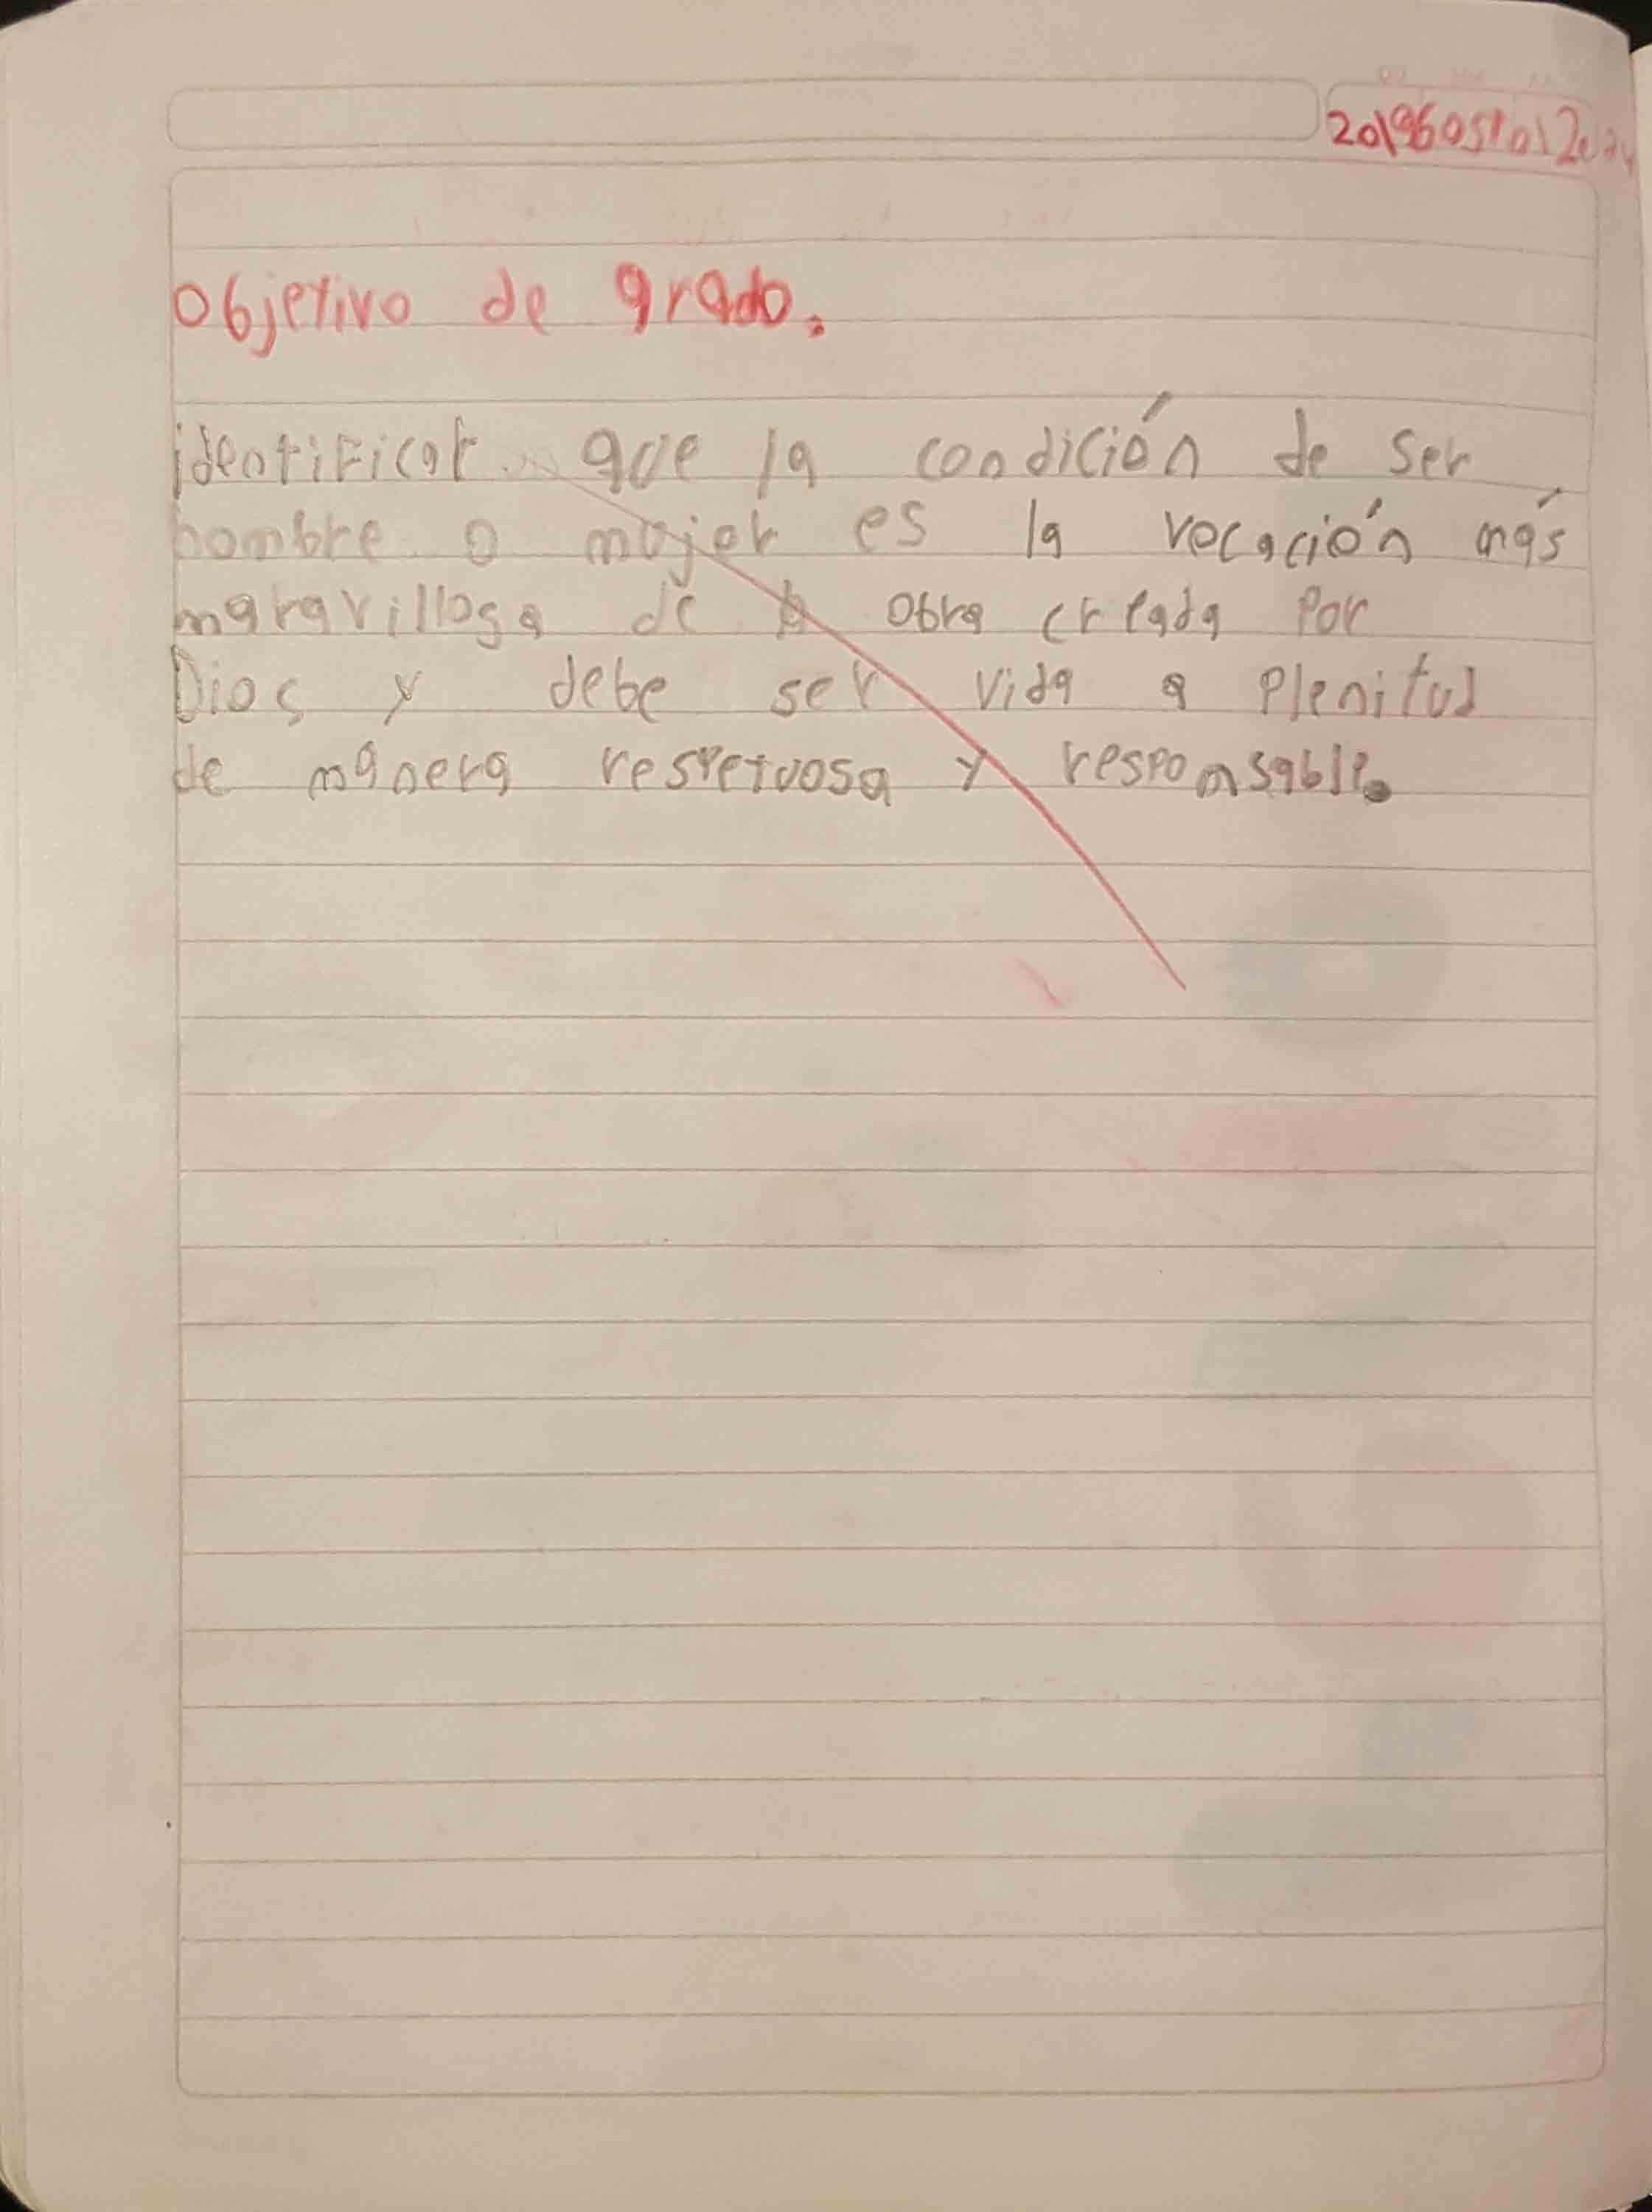 Objetivo de grado.
identificar que la condición de ser
hombre o mujer es la vocación más
maravillosa de obra creada por
Dios y debe ser vida a plenitud
de manera respetuosa y responsable.